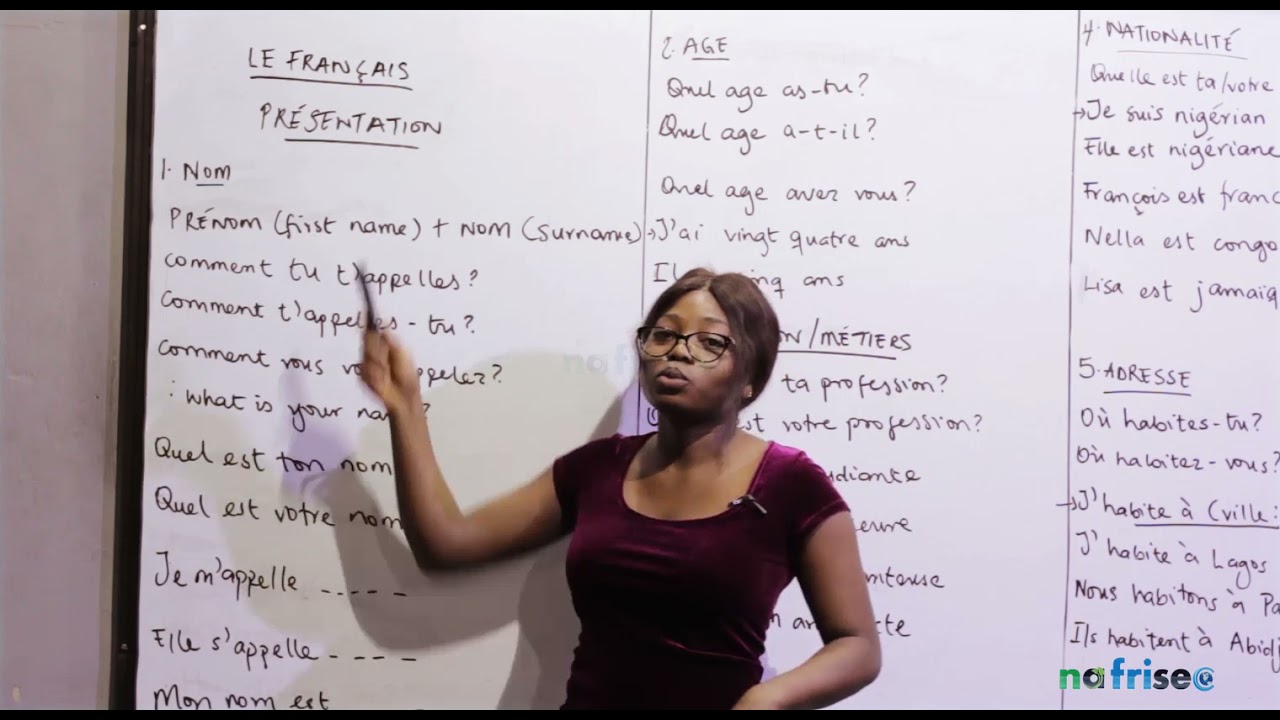 LE FRANÇAIS
PRÉSENTATION
1. NOM
PRÉNOM (first name) + NOM (surname)
comment tu t'appelles?
comment t'appelles-tu?
comment vous
: what is your
Quel est ton nom
Quel est votre nom
Je m'appelle -----
Elle s'appelle ----
Mon nom est
2. AGE
Quel age as-tu?
Quel age a-t-il?
Quel age avez vous?
→J'ai vingt quatre ans
ans
/MÉTIERS
ta profession?
votre profession?
4. NATIONALITÉ
Quelle est ta/votre
→Je suis nigérian
Elle est nigériane
François est franc
Nella est congo
Lisa est jamaïq
5. ADRESSE
Où habites-tu?
Où habitez-vous?
→J'habite à (ville:
J'habite à Lagos
Nous habitons à Pa
Ils habitent à Abidj
nafrisec